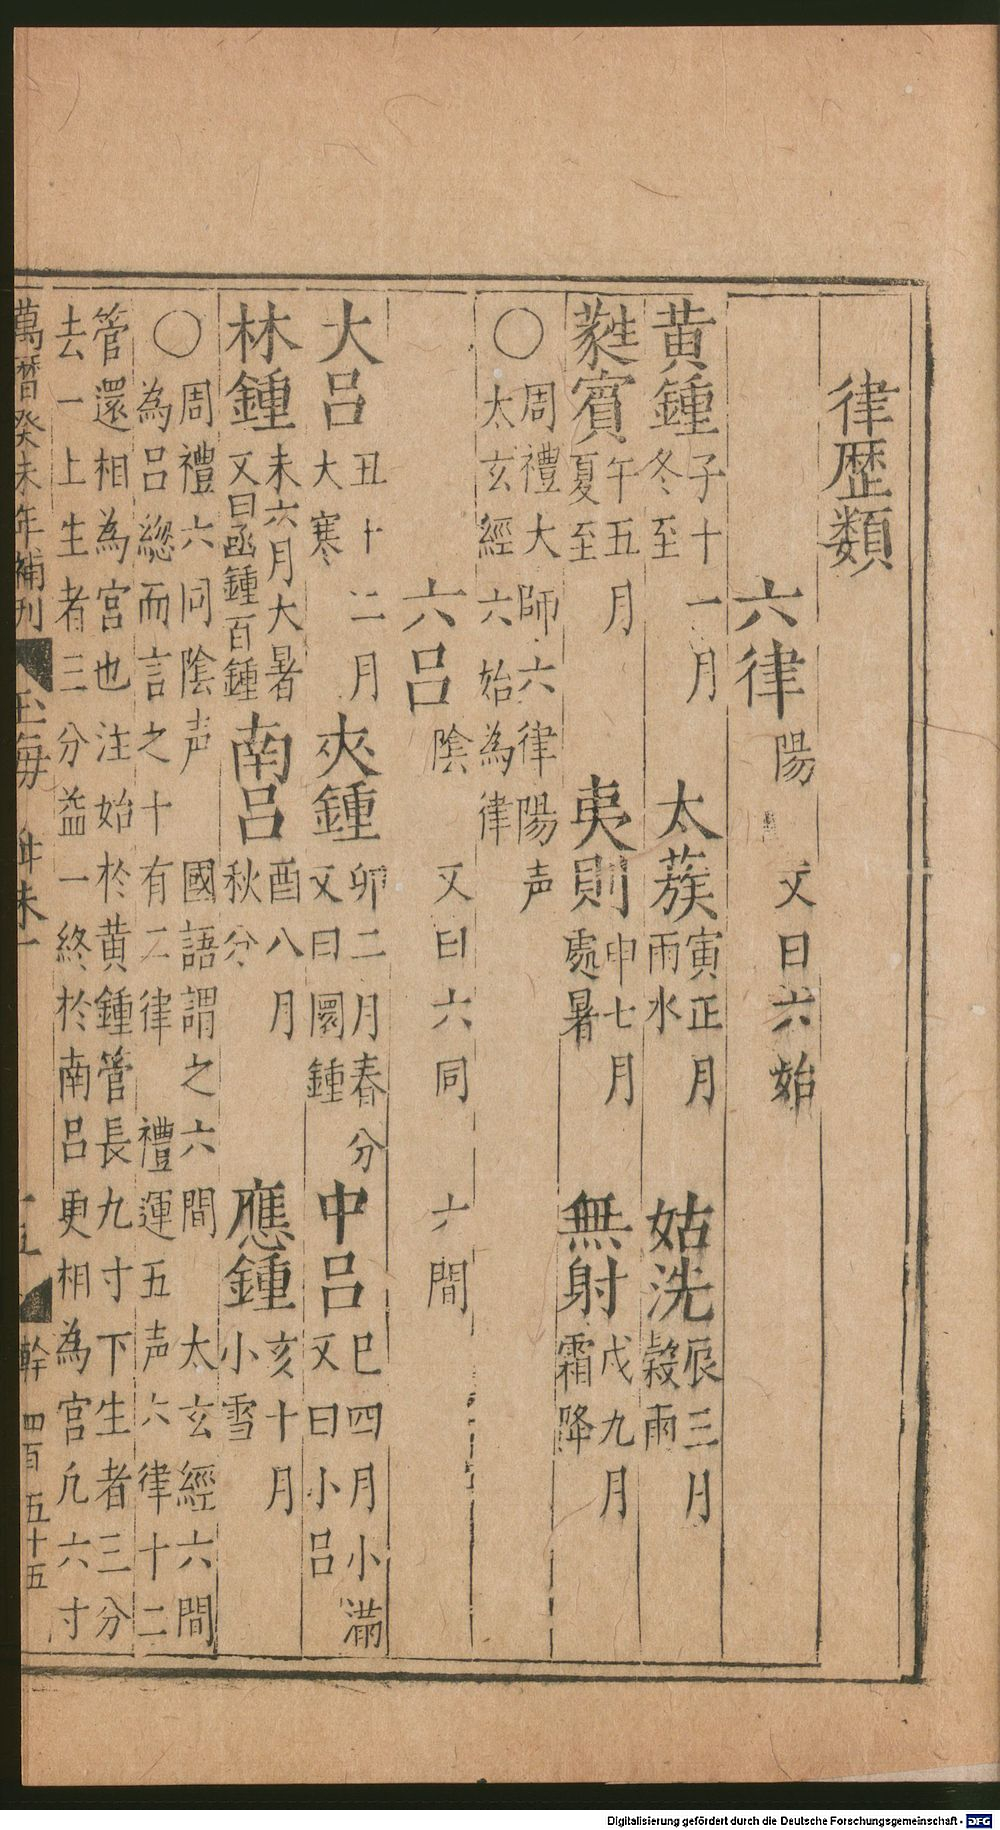 律歴類
六律陽 又曰六始
黄鍾子十一月冬至 太蔟寅正月雨水 姑洗辰三月穀雨
蕤賓午五月夏至 夷則申七月處暑 無射戌九月霜降
○周禮大師六律陽声
太玄經六始為律
六吕陰 又曰六同 六間
大吕丑十二月大寒 夾鍾卯二月春分又曰圜鍾 中吕巳四月小滿又曰小吕
林鍾未六月大暑又曰函鍾百鍾 南吕酉八月秋分 應鍾亥十月小雪
○周禮六同陰声 國語謂之六間 太玄經六間
為吕緫而言之十有二律 禮運五声六律十二
管還相為宮也注始於黄鍾管長九寸下生者三分
去一上生者三分益一終於南吕更相為宮凢六寸
萬曆癸未年補刊 玉海 幹 四百五十五
Digitalisierung gefördert durch die Deutsche Forschungsgemeinschaft - DFG